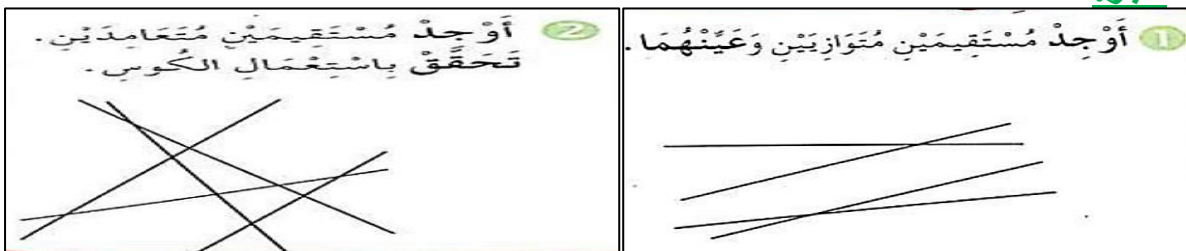 1 أَوْجِدْ مُسْتَقِيمَيْنِ مُتَوَازِيَيْنِ وَعَيِّنْهُمَا.
2 أَوْجِدْ مُسْتَقِيمَيْنِ مُتَعَامِدَيْنِ.
تَحَقَّقْ بِاسْتِعْمَالِ الكُوسِ.